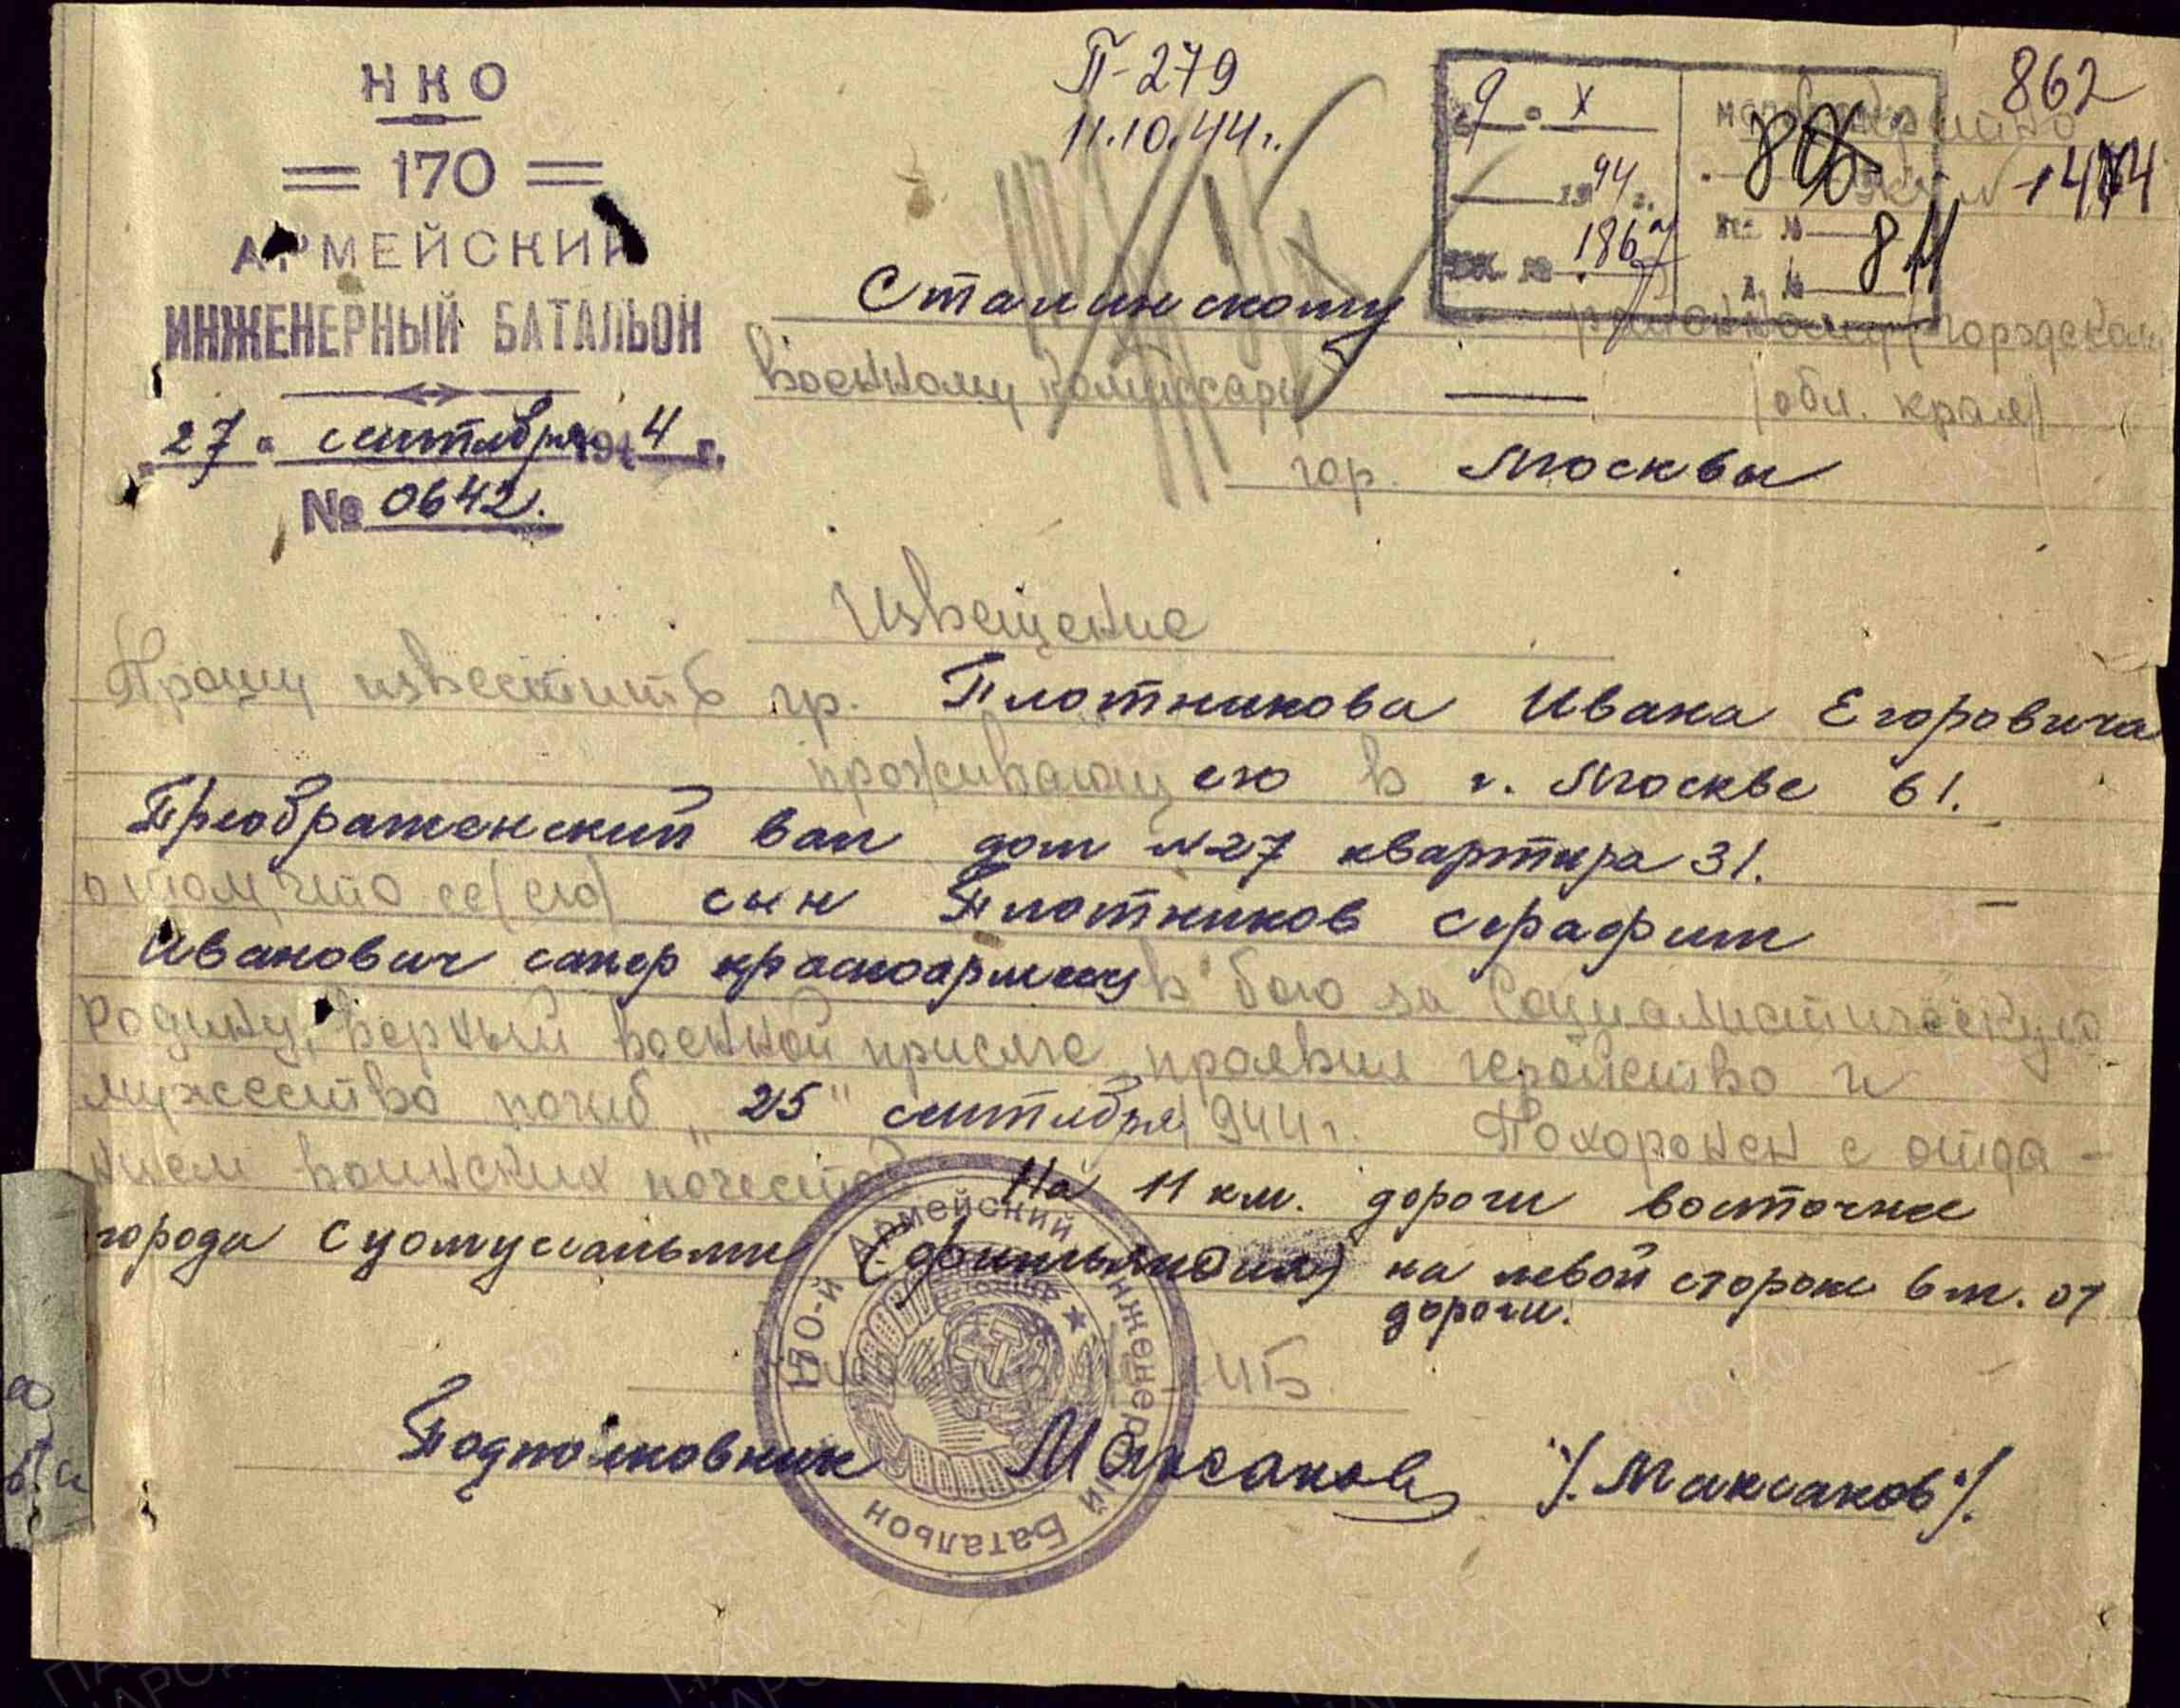 НКО
170
АРМЕЙСКИЙ
ИНЖЕНЕРНЫЙ БАТАЛЬОН
"27" сентября 1944 г.
№ 0642.
П-279
11.10.44 г.
9 " X
1944 г.
1867
862
811
Сталинскому районному (городском
военному комиссару — (обл. края)
гор. Москвы
Извещение
Прошу известить гр. Плотникова Ивана Егоровича
проживающего в г. Москве 61.
Преображенский вал дом №27 квартира 31.
о том, что ее (его) сын Плотников Серафим
Иванович сапер красноармеец в бою за Социалистическую
родину, верный военной присяге, проявил геройство и
мужество погиб "25" сентября 1944 г. Похоронен с отда-
нием воинских почестей На 11 км. дороги восточнее
города Суомуссальми (Финляндия) на левой стороне 6 м. от
дороги.
ИБ
Подполковник Максаков /. Максаков /.
170-й Армейский Инженерный Батальон